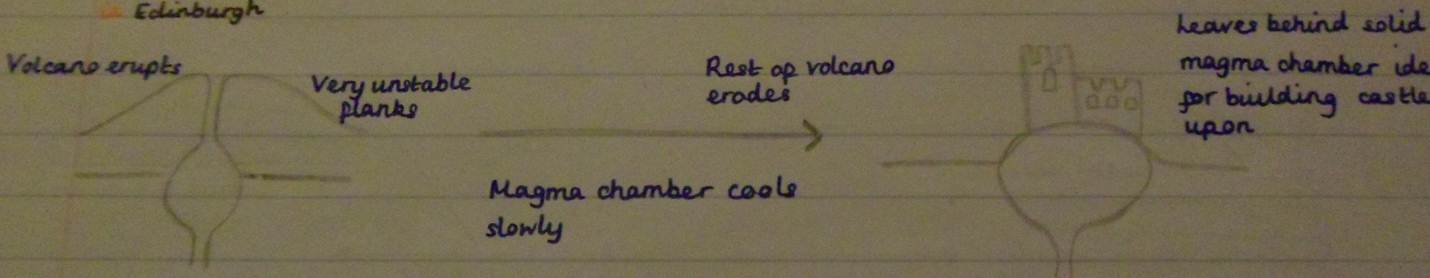 Edinburgh
Volcano erupts
Very unstable
planks
Rest op volcano
erodes
Magma chamber cools
slowly
Leaves behind solid
magma chamber ide
for building castle
upon